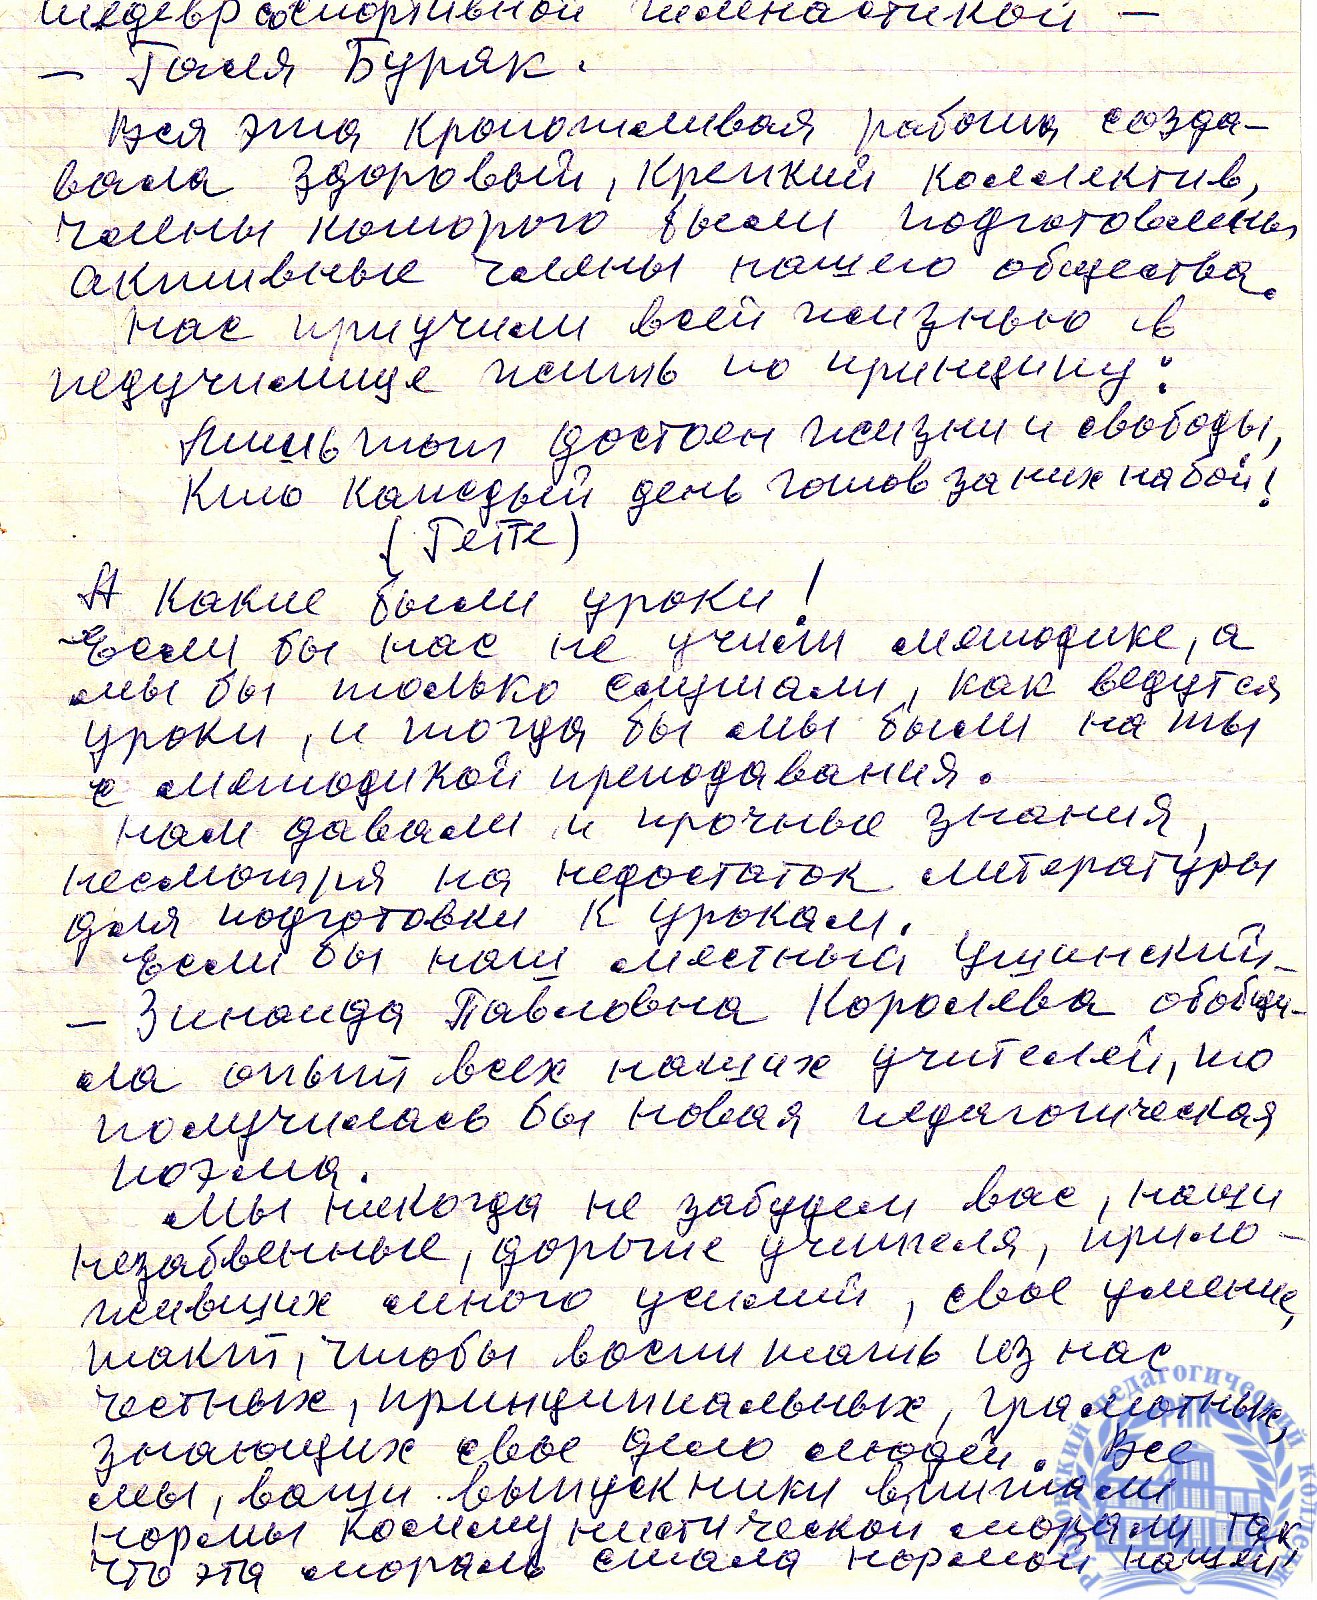 шедевр со спортивной гимнастикой –
– Галя Буряк.
Вся эта кропотливая работа созда–
вала здоровый, крепкий коллектив,
члены которого были подготовлены
активные члены нашего общества.
Нас приучили всей жизнью в
педучилище жить по принципу:
Лишь тот достоен жизни и свободы,
Кто каждый день готов за них на бой!
(Гетте)
А какие были уроки!
Если бы нас не учили методике, а
мы бы только слушали, как ведутся
уроки, и тогда бы мы были на ты
с методикой преподавания.
Нам давали и прочные знания,
несмотря на недостаток литературы
для подготовки к урокам.
Если бы наш местный Ушинский –
– Зинаида Павловна Королёва обобщи–
ла опыт всех наших учителей, то
получилась бы новая педагогическая
поэма.
Мы никогда не забудем вас, наши
незабвенные, дорогие учителя, прило–
живших много усилий, свое умение,
такт, чтобы воспитать из нас
честных, принципиальных, грамотных,
знающих свое дело людей. Все
мы, ваши выпускники впитали
нормы коммунистической морали так,
что эта мораль стала нормой нашей
педагогический колледж
РПК